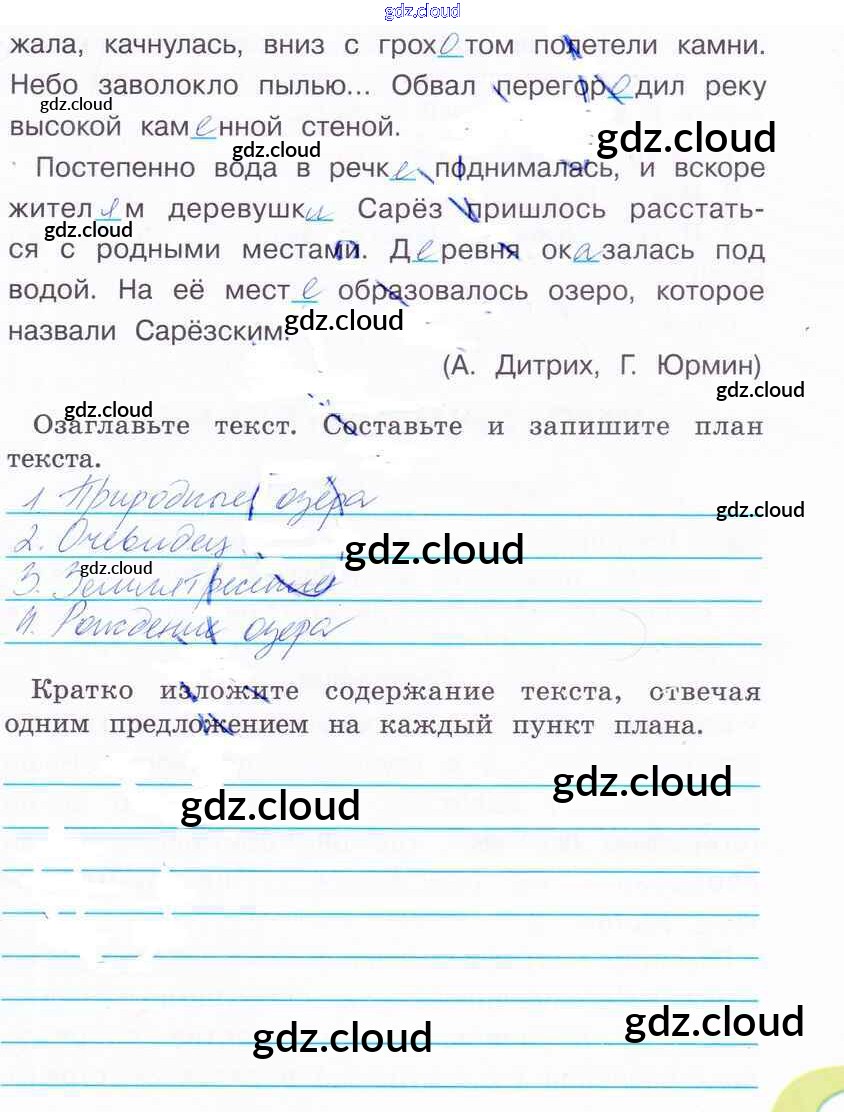 gdz.cloud
жала, качнулась, вниз с грохотом полетели камни.
Небо заволокло пылью... Обвал перегородил реку
gdz.cloud
высокой каменной стеной.
gdz.cloud
gdz.cloud
Постепенно вода в речке поднималась, и вскоре
жителям деревушки Сарёз пришлось расстать-
gdz.cloud
ся с родными местами. Деревня оказалась под
водой. На её месте образовалось озеро, которое
назвали Сарёзским.
gdz.cloud
(А. Дитрих, Г. Юрмин)
gdz.cloud
gdz.cloud
Озаглавьте текст. Составьте и запишите план
текста.
1 Природные озёра
gdz.cloud
2. Очевидец.
gdz.cloud
gdz.cloud
3. Землятресение
4. Рождение озера
Кратко изложите содержание текста, отвечая
одним предложением на каждый пункт плана.
gdz.cloud
gdz.cloud
gdz.cloud
gdz.cloud